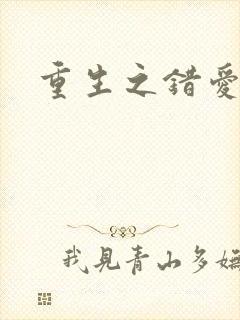 重生之錯愛
我見青山多嫵